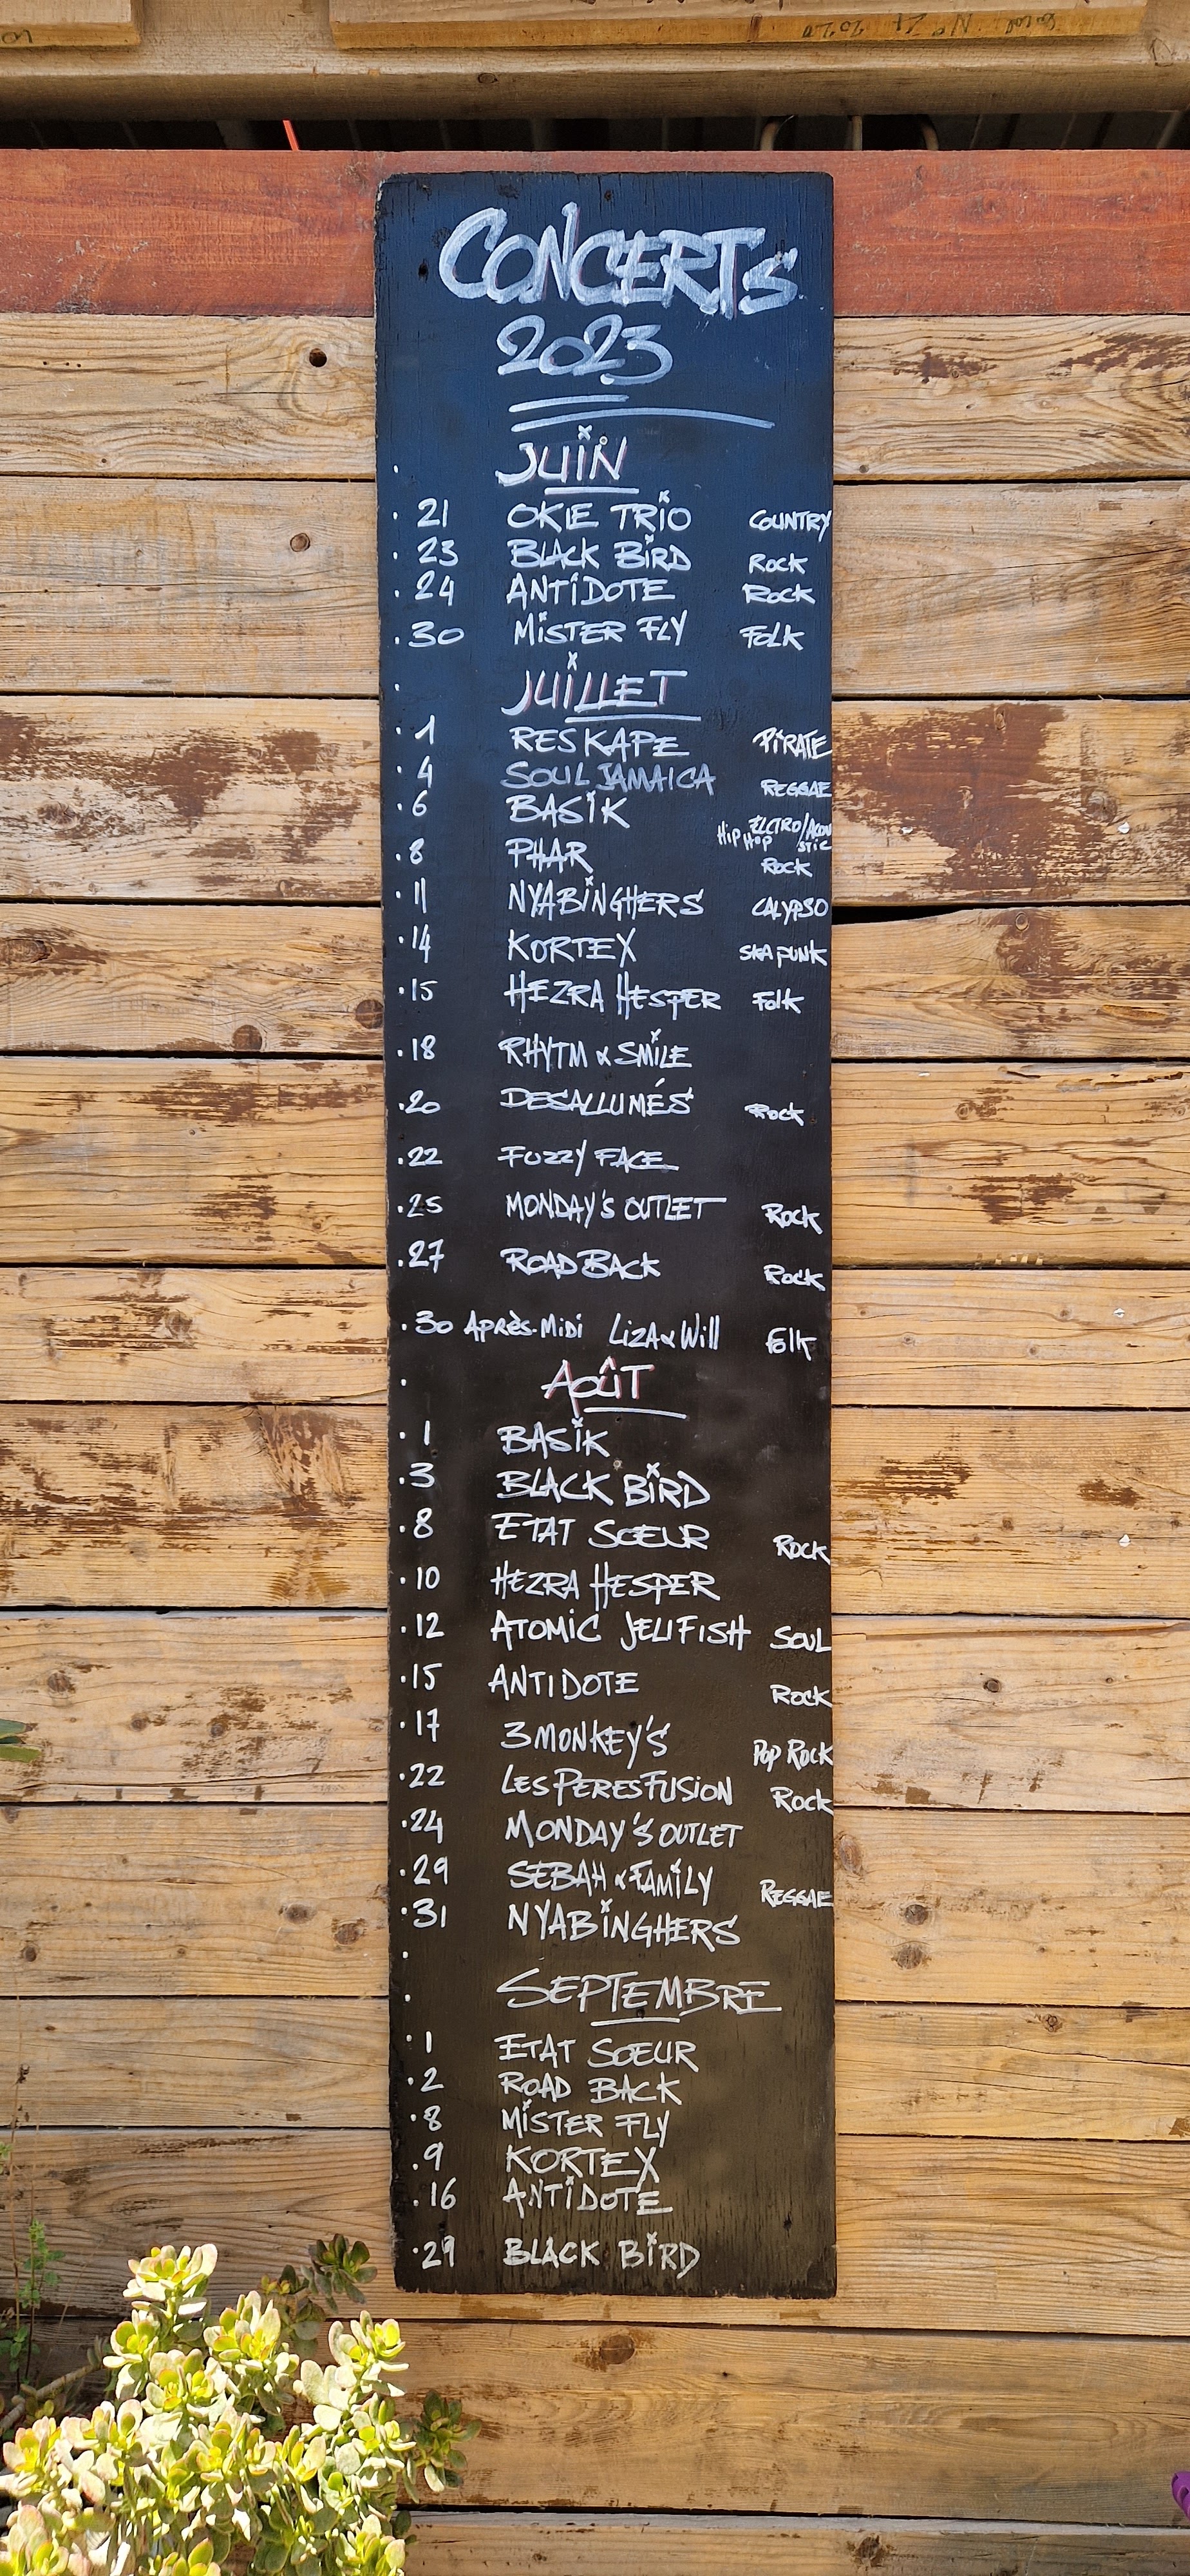 CONCERTS
2023
JUIN
. 21 OKIE TRIO COUNTRY
. 23 BLACK BIRD ROCK
. 24 ANTIDOTE ROCK
. 30 MISTER FLY FOLK
JUILLET
. 1 RESKAPE PIRATE
. 4 SOUL JAMAICA REGGAE
. 6 BASIK HIP HOP ELCTRO/ACOUSTIC
. 8 PHAR ROCK
. 11 NYABINGHERS CALYPSO
. 14 KORTEX SKA PUNK
. 15 HEZRA HESPER Folk
. 18 RHYTM & SMILE
. 20 DESALLUMÉS ROCK
. 22 FUZZY FACE
. 25 MONDAY'S OUTLET ROCK
. 27 ROAD BACK ROCK
. 30 APRÈS-MIDI LIZA & Will Folk
AOÛT
. 1 BASIK
. 3 BLACK BIRD
. 8 ETAT SOEUR ROCK
. 10 HEZRA HESPER
. 12 ATOMIC JELIFISH SOUL
. 15 ANTIDOTE ROCK
. 17 3 MONKEY'S POP ROCK
. 22 LES PERES FUSION ROCK
. 24 MONDAY'S OUTLET
. 29 SEBAH & FAMILY REGGAE
. 31 NYABINGHERS
SEPTEMBRE
. 1 ETAT SOEUR
. 2 ROAD BACK
. 8 MISTER FLY
. 9 KORTEX
. 16 ANTIDOTE
. 29 BLACK BIRD